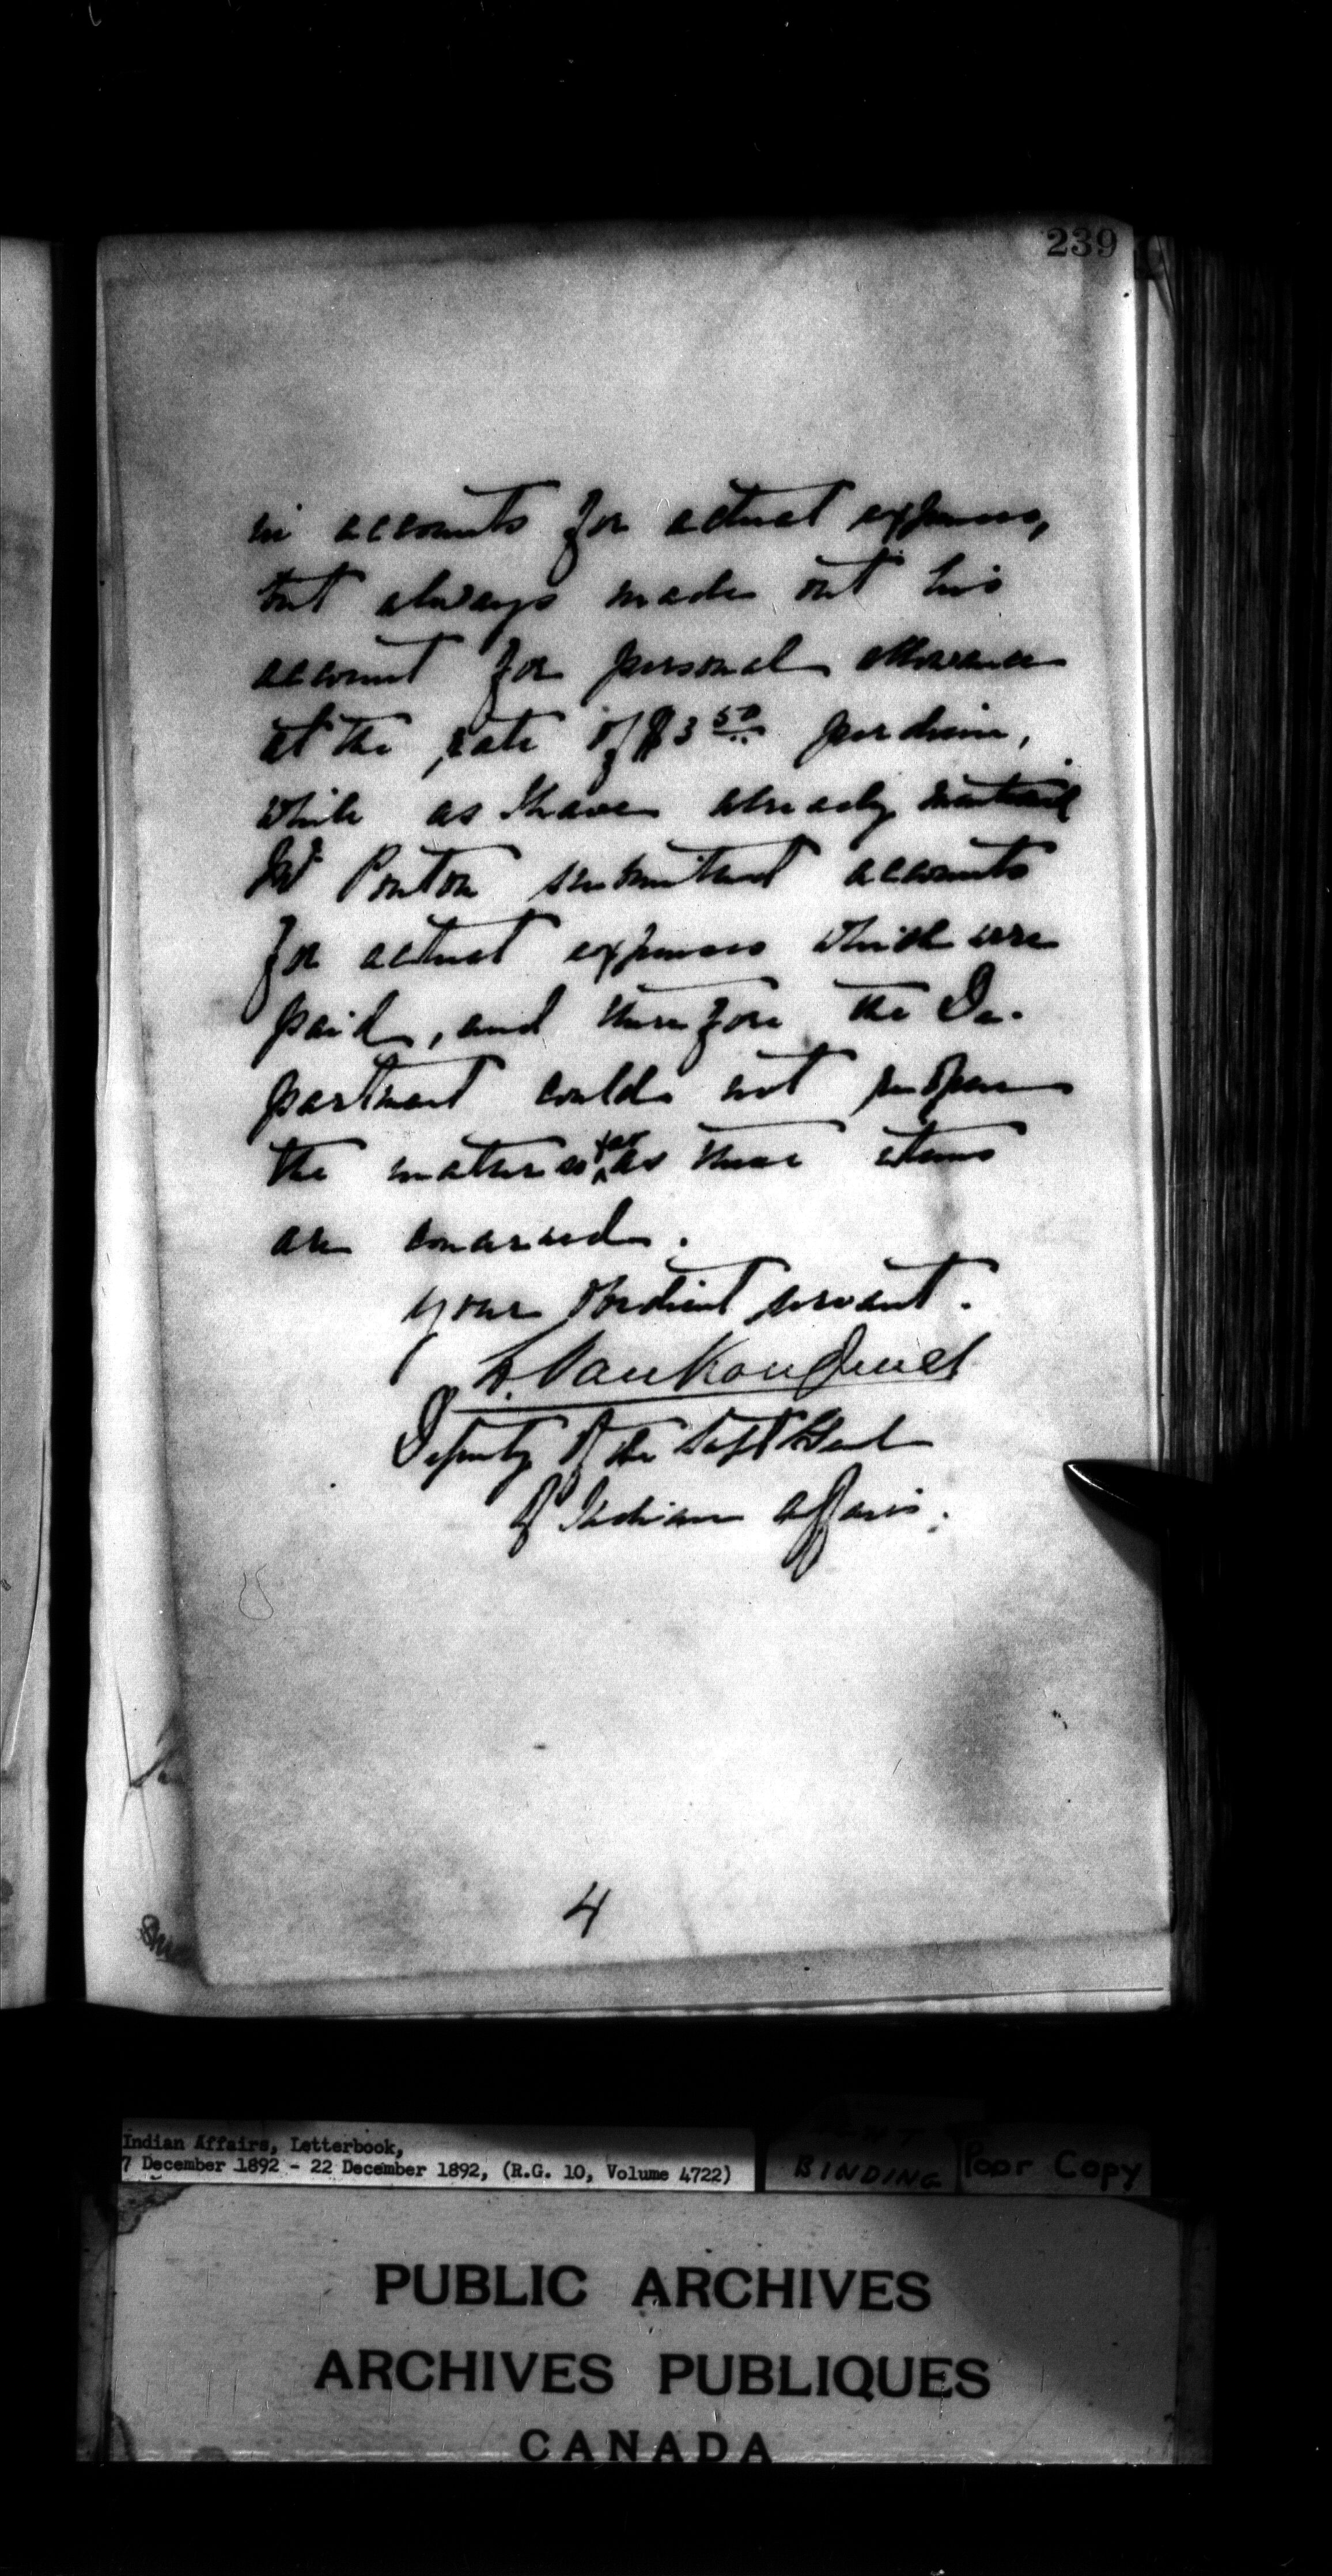 239
in accounts for actual expenses,
but always made out his
account for personal allowance
at the rate of $3 50 per diem,
while as I have already mentioned
Mr Ponton submitted accounts
for actual expenses which were
paid, and therefore the De-
partment could not reopen
the matter so far as these items
are concerned.
Your obedient servant.
L. VanKoughnet
Deputy of the Supt Genl
of Indian Affairs.
4
Indian Affairs, Letterbook,
7 December 1892 - 22 December 1892, (R.G. 10, Volume 4722)
BINDING
Poor Copy
PUBLIC ARCHIVES
ARCHIVES PUBLIQUES
CANADA